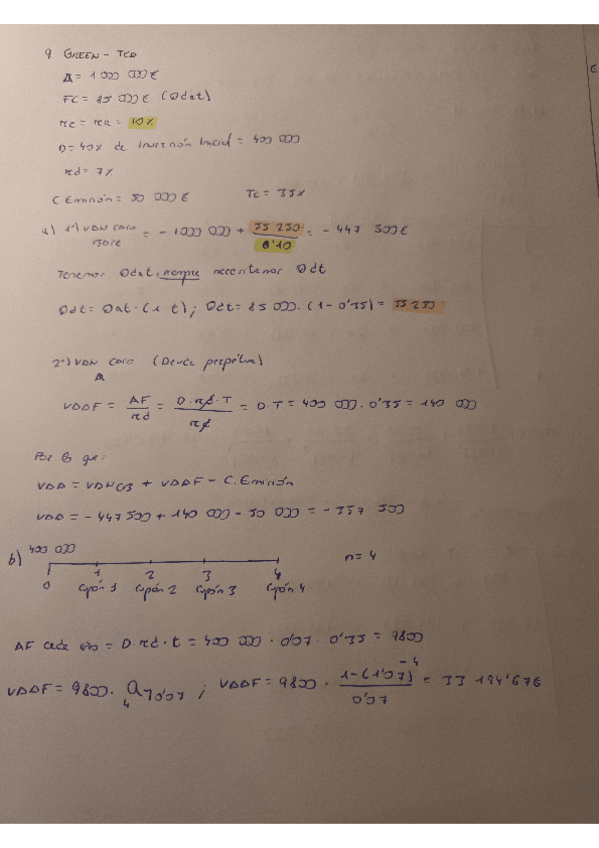 9. GREEN - TCD
A = 1 000 000€
FC = 85 000€ (Odat)
re = ra = 10%
D = 40% de Inversión Inicial = 400 000
rd = 7%
C. Emisión = 50 000€ Tc = 35%
a) 1º) VAN caso BASE = - 1000 000 + 55 250 / 0'10 = - 447 500€
Tenemos Odat, siempre necesitamos Odt
Odt = Oat · (1 t) ; Odt = 85 000 · (1 - 0'35) = 55 250
2º) VAN caso A (Deuda perpétua)
VADF = AF / rd = D · rd · T / rd = D · T = 400 000 · 0'35 = 140 000
Por lo que:
VAA = VANCB + VADF - C. Emisión
VAA = - 447 500 + 140 000 - 50 000 = - 357 500
b) 400 000 n = 4
0 1 2 3 4
Cupón 1 Cupón 2 Cupón 3 Cupón 4
AF cada año = D · rd · t = 400 000 · 0'07 · 0'35 = 9800
VADF = 9800 · a 4 7 0'07 ; VADF = 9800 · 1 - (1'07)^-4 / 0'07 = 33 194'67€